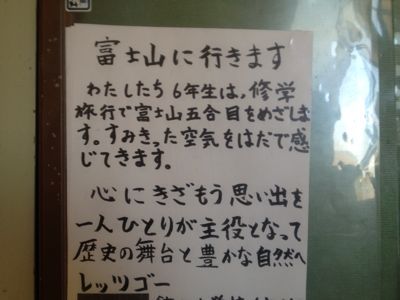 富士山に行きます
わたしたち6年生は、修学
旅行で富士山五合目をめざしま
す。すみきった空気をはだで感
じてきます。
心にきざもう思い出を
一人ひとりが主役となって
歴史の舞台と豊かな自然へ
レッツゴー